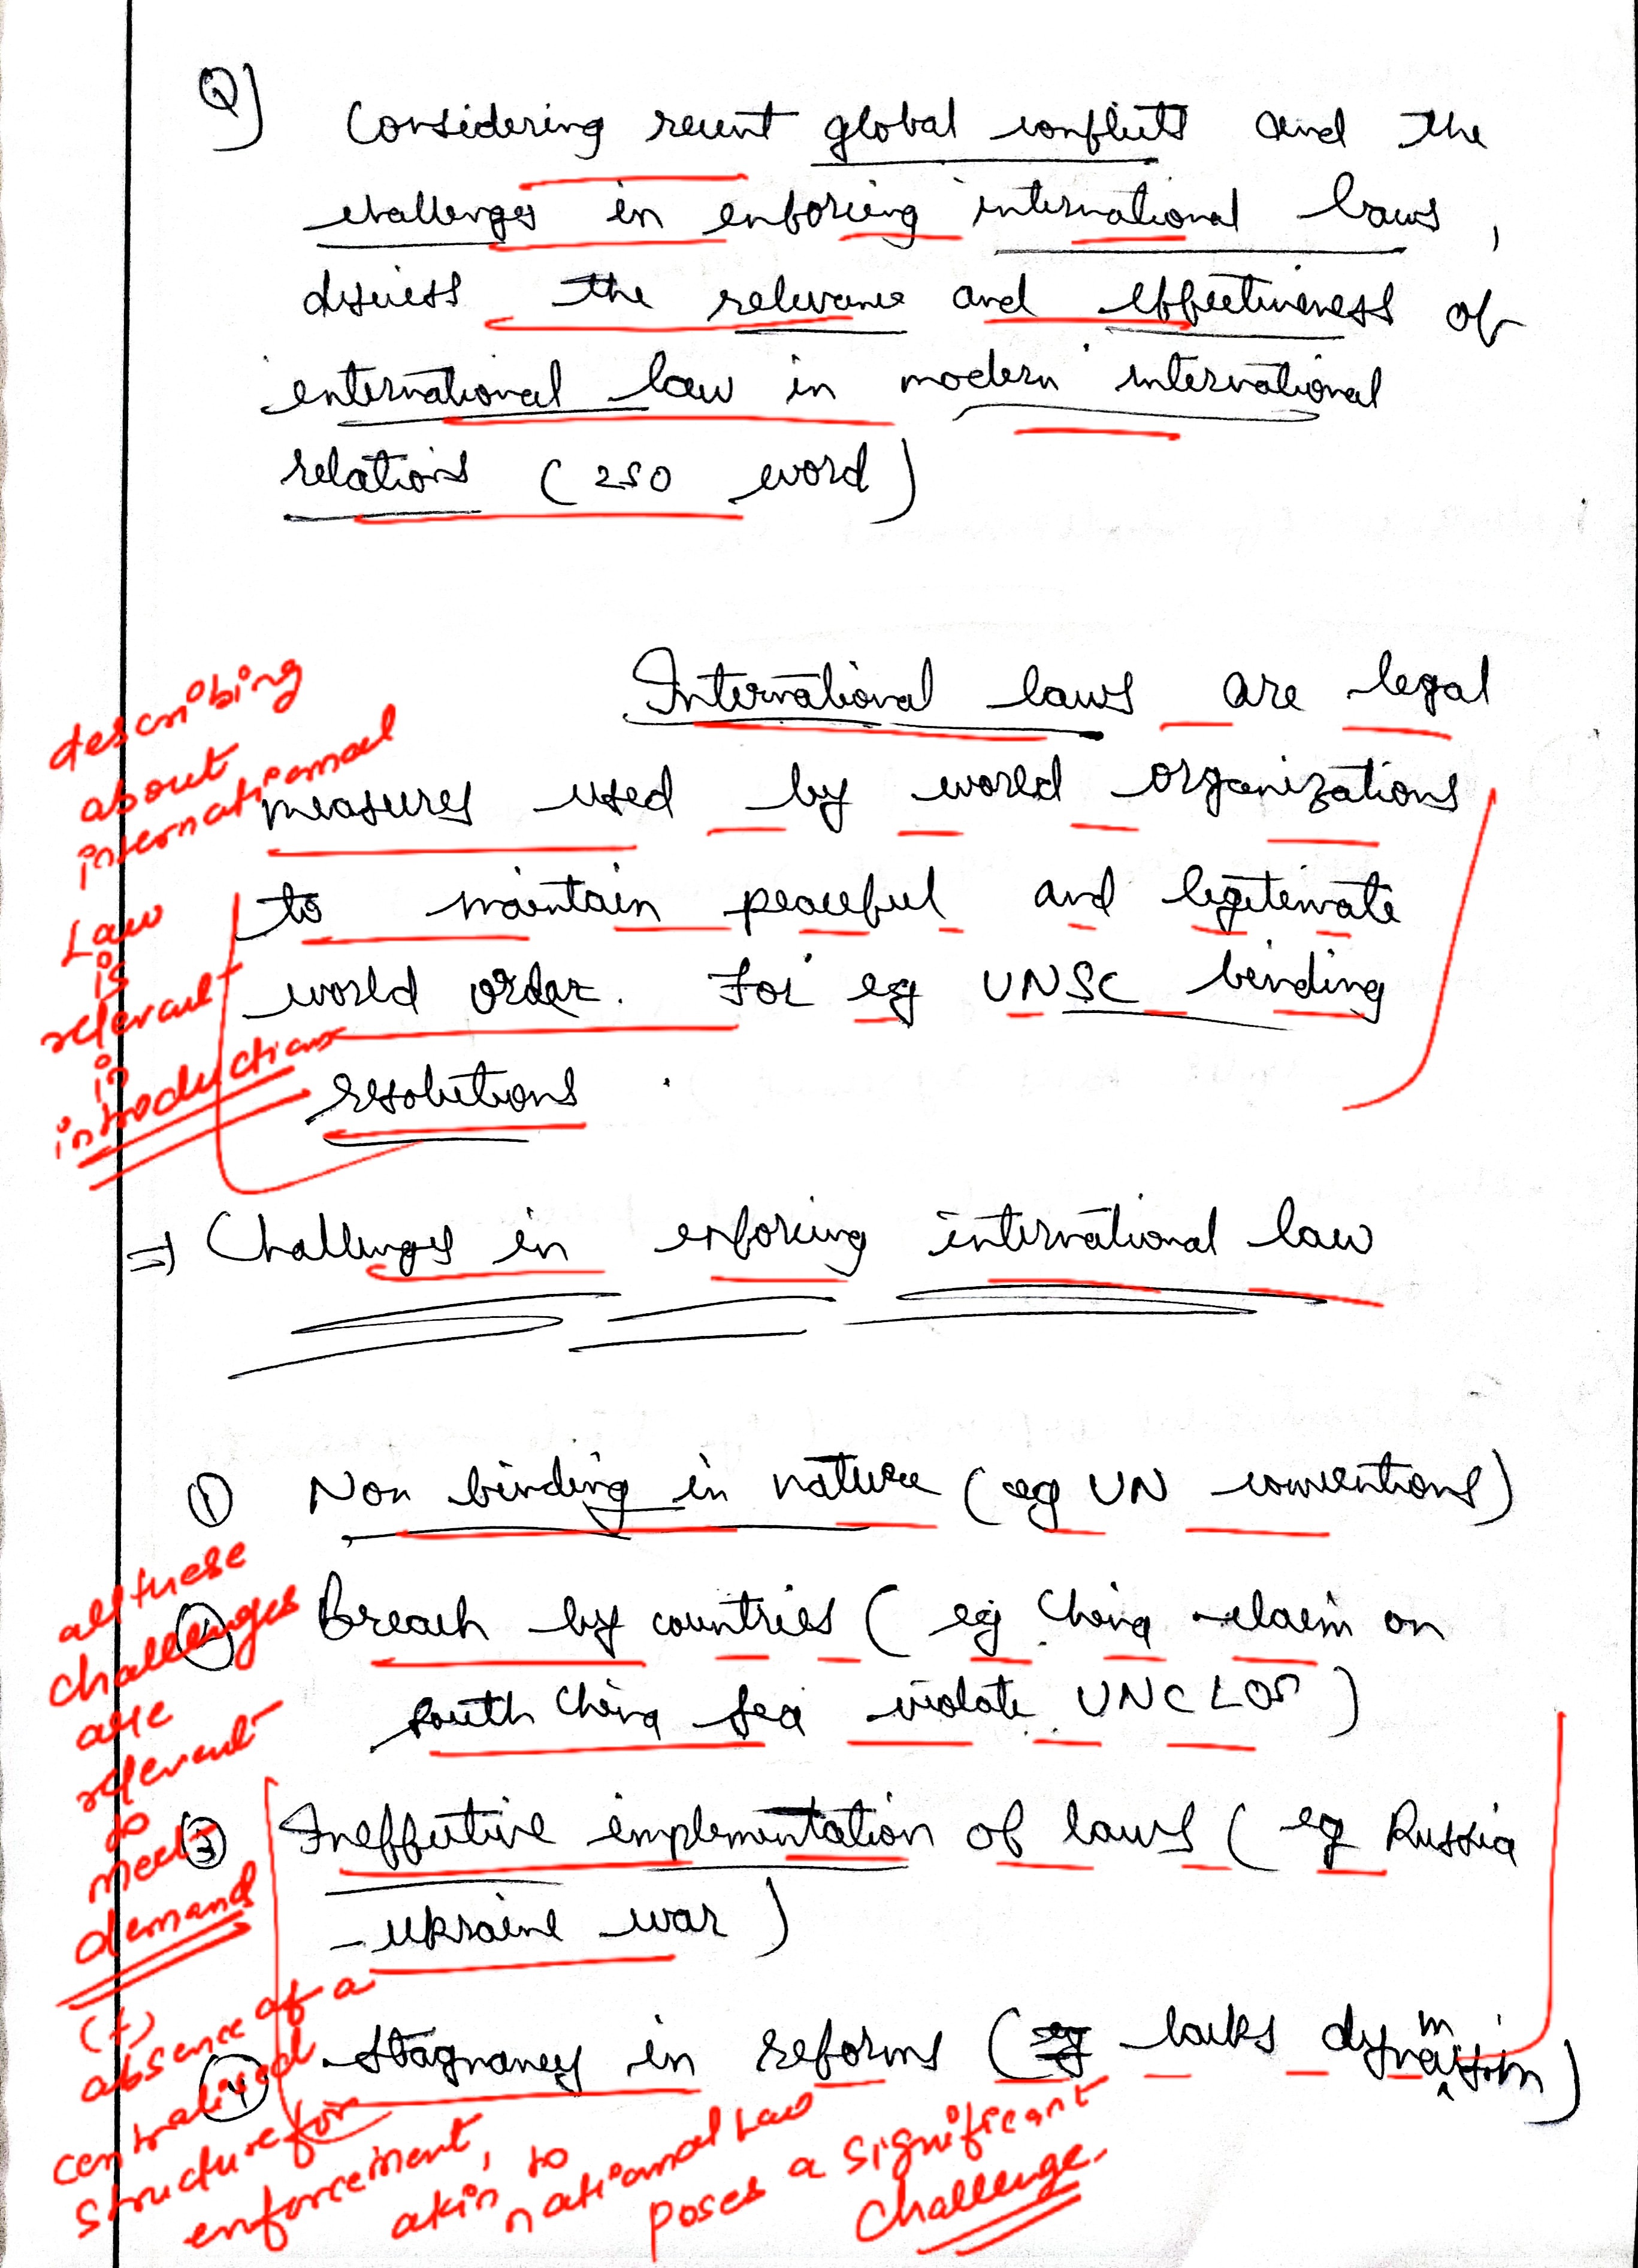 Q) Considering recent global conflicts and the
challenges in enforcing international laws,
discuss the relevance and effectiveness of
international law in modern international
relations (250 word)
International laws are legal
measures used by world organizations
to maintain peaceful and legitimate
world order. For eg UNSC binding
resolutions.
describing
about
international
Law
is
relevant
in
introduction
⇒ Challenges in enforcing international law
① Non binding in nature (eg UN conventions)
② Breach by countries (eg China claim on
south China Sea violate UNCLOS)
③ Ineffective implementation of laws (eg Russia
-Ukraine war)
④ Stagnancy in reforms (eg lacks dynamism)
all these
challenges
are
relevant
to
meet
demand
(+)
absence of a
centralised
structure for
enforcement,
akin to
national Law
poses a significant
challenge.